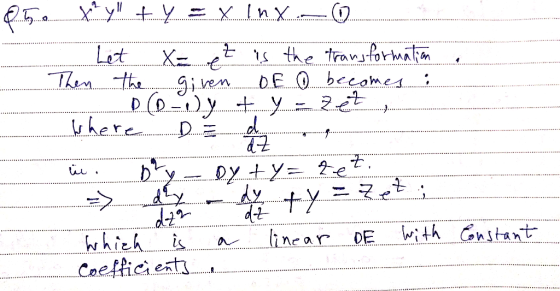 Q5. x²y'' + y = x ln x. — ①
Let x = e^z is the transformation.
Then the given DE ① becomes :
D(D-1)y + y = ze^z ,
where D ≡ d/dz .
i.e. D²y - Dy + y = ze^z.
⇒ d²y/dz² - dy/dz + y = ze^z ;
which is a linear DE with constant
coefficients .